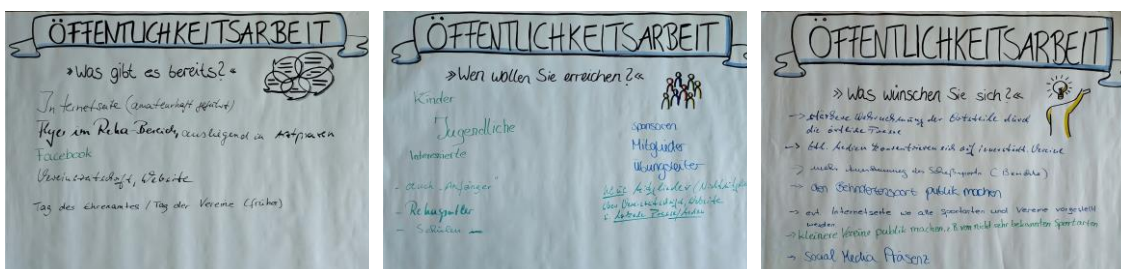 ÖFFENTLICHKEITSARBEIT
»Was gibt es bereits?«
Internetseite (amateurhaft geführt)
Flyer im Reha-Bereich, ausliegend in Arztpraxen
Facebook
Vereinszeitschrift, Website
Tag des Ehrenamtes / Tag der Vereine (früher)
ÖFFENTLICHKEITSARBEIT
»Wen wollen Sie erreichen?«
Kinder
Jugendliche
Interessierte
- auch "Anfänger"
- Rehasportler
- Schulen
Sponsoren
Mitglieder
Übungsleiter
neue Mitglieder
über Vereinszeitschrift, Website
& lokale Presse
ÖFFENTLICHKEITSARBEIT
»Was wünschen Sie sich?«
-> stärkere Wahrnehmung der Ortsteile durch
die örtliche Presse
-> Medien konzentrieren sich auf Vereine
-> mehr des Schießsports
-> den Behindertensport publik machen
-> evt. Internetseite wo alle Sportarten und Vereine vorgestellt
werden
-> kleinere Vereine publik machen, z.B. von nicht sehr bekannten Sportarten
-> Social Media Präsenz